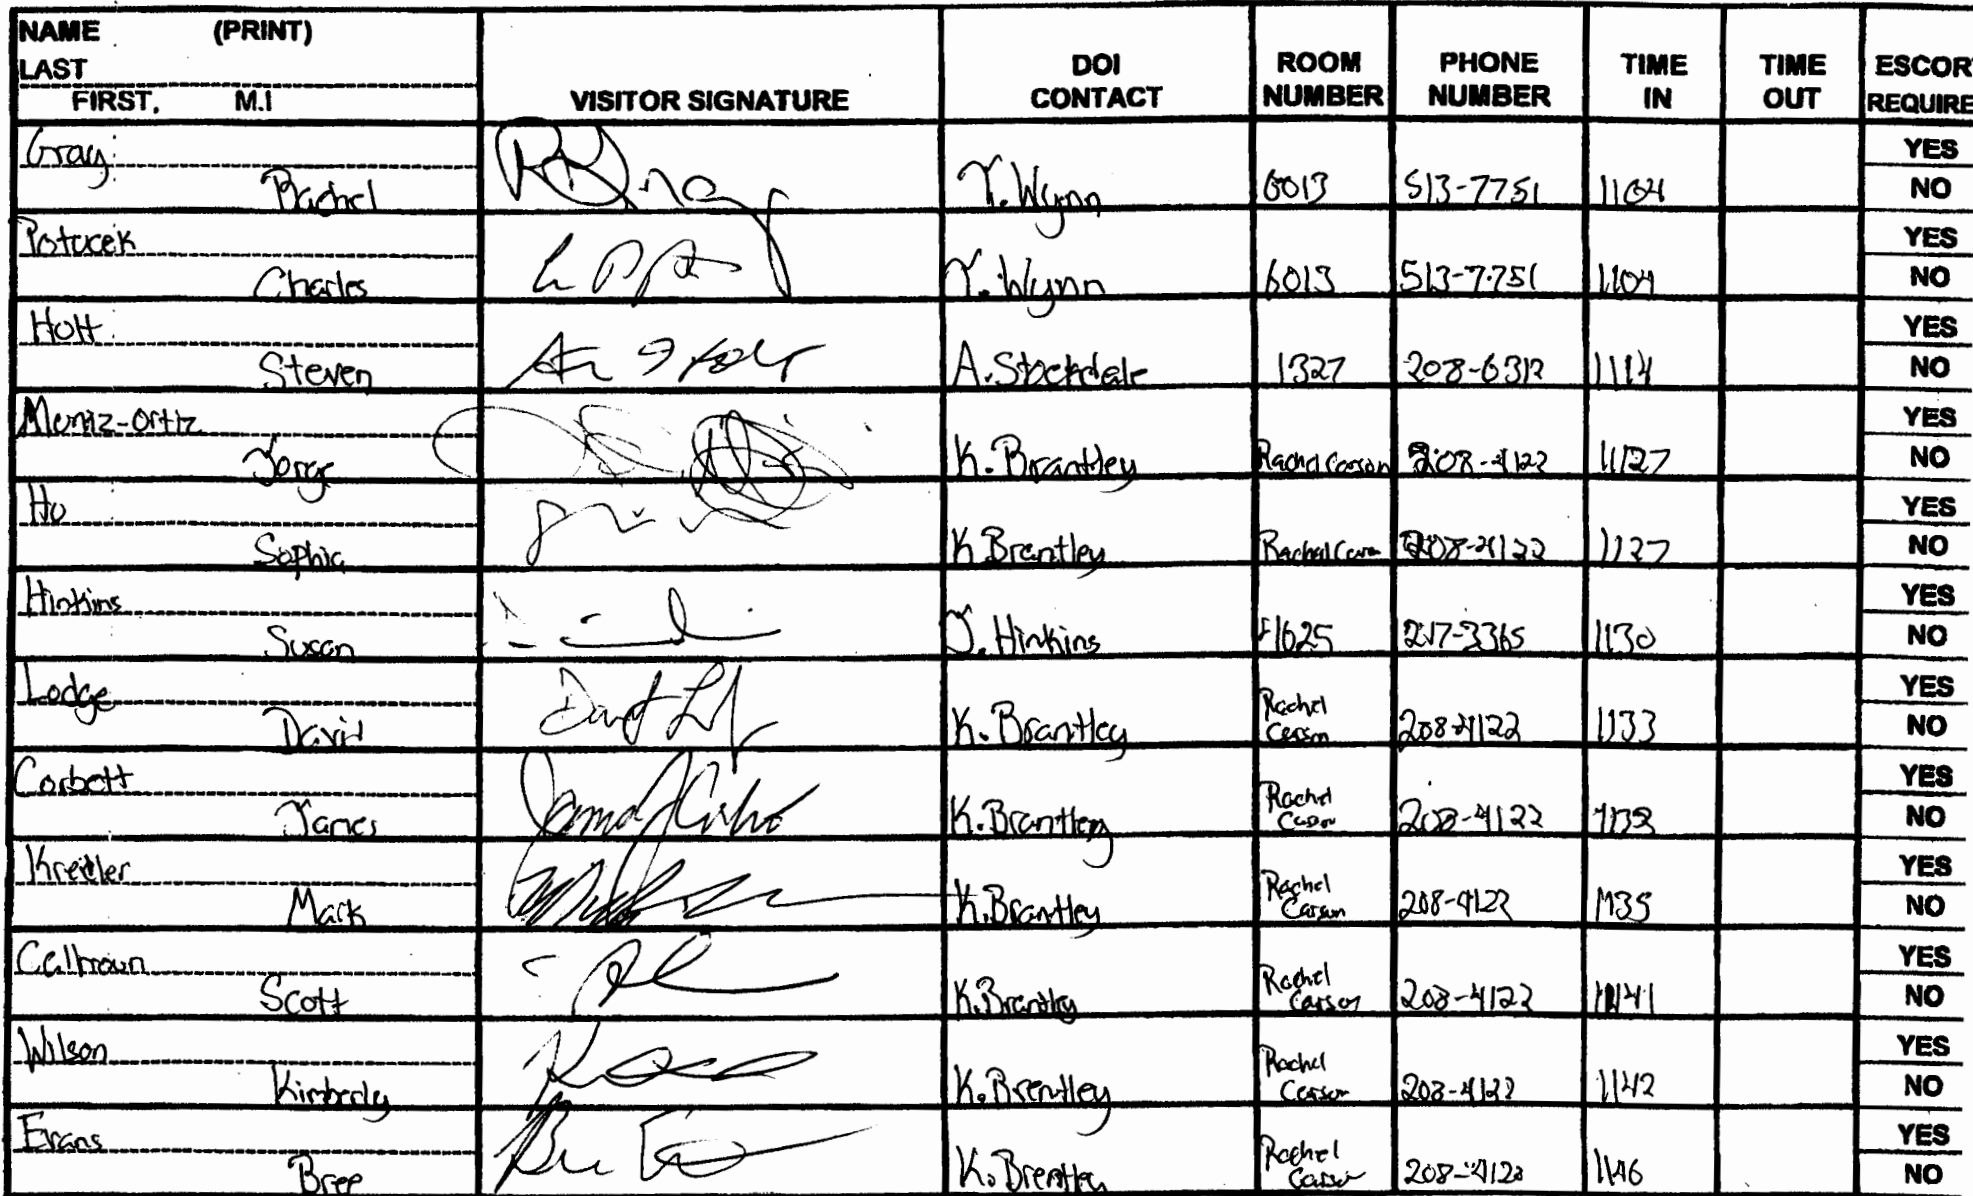 NAME (PRINT)
LAST
FIRST, M.I
VISITOR SIGNATURE
DOI CONTACT
ROOM NUMBER
PHONE NUMBER
TIME IN
TIME OUT
ESCOR REQUIRE
Gray
Rachel T. Wynn 6013 513-7751 1104
YES
NO
Potucek
Charles T. Wynn 6013 513-7751 1104
YES
NO
Holt
Steven A. Stockdale 1327 208-6312 1114
YES
NO
Muniz-Ortiz
Jorge K. Brantley Rachel Carson 208-4122 1127
YES
NO
Ho
Sophia K. Brantley Rachel 208-4122 1127
YES
NO
Hinkins
Susan J. Hinkins 1625 1130
YES
NO
Lodge
David K. Brantley Rachel Carson 208-4122 1133
YES
NO
Corbett
James K. Brantley Rachel Carson 208-4122
YES
NO
Kreitler
Mark K. Brantley Rachel Carson 208-4122 1135
YES
NO
Calhoun
Scott K. Brantley Rachel Carson 208-4122 1141
YES
NO
Wilson
Kimberly K. Brantley Rachel Carson 208-4122 1142
YES
NO
Evans
Bree K. Brantley Rachel Carson 208-4122 1146
YES
NO